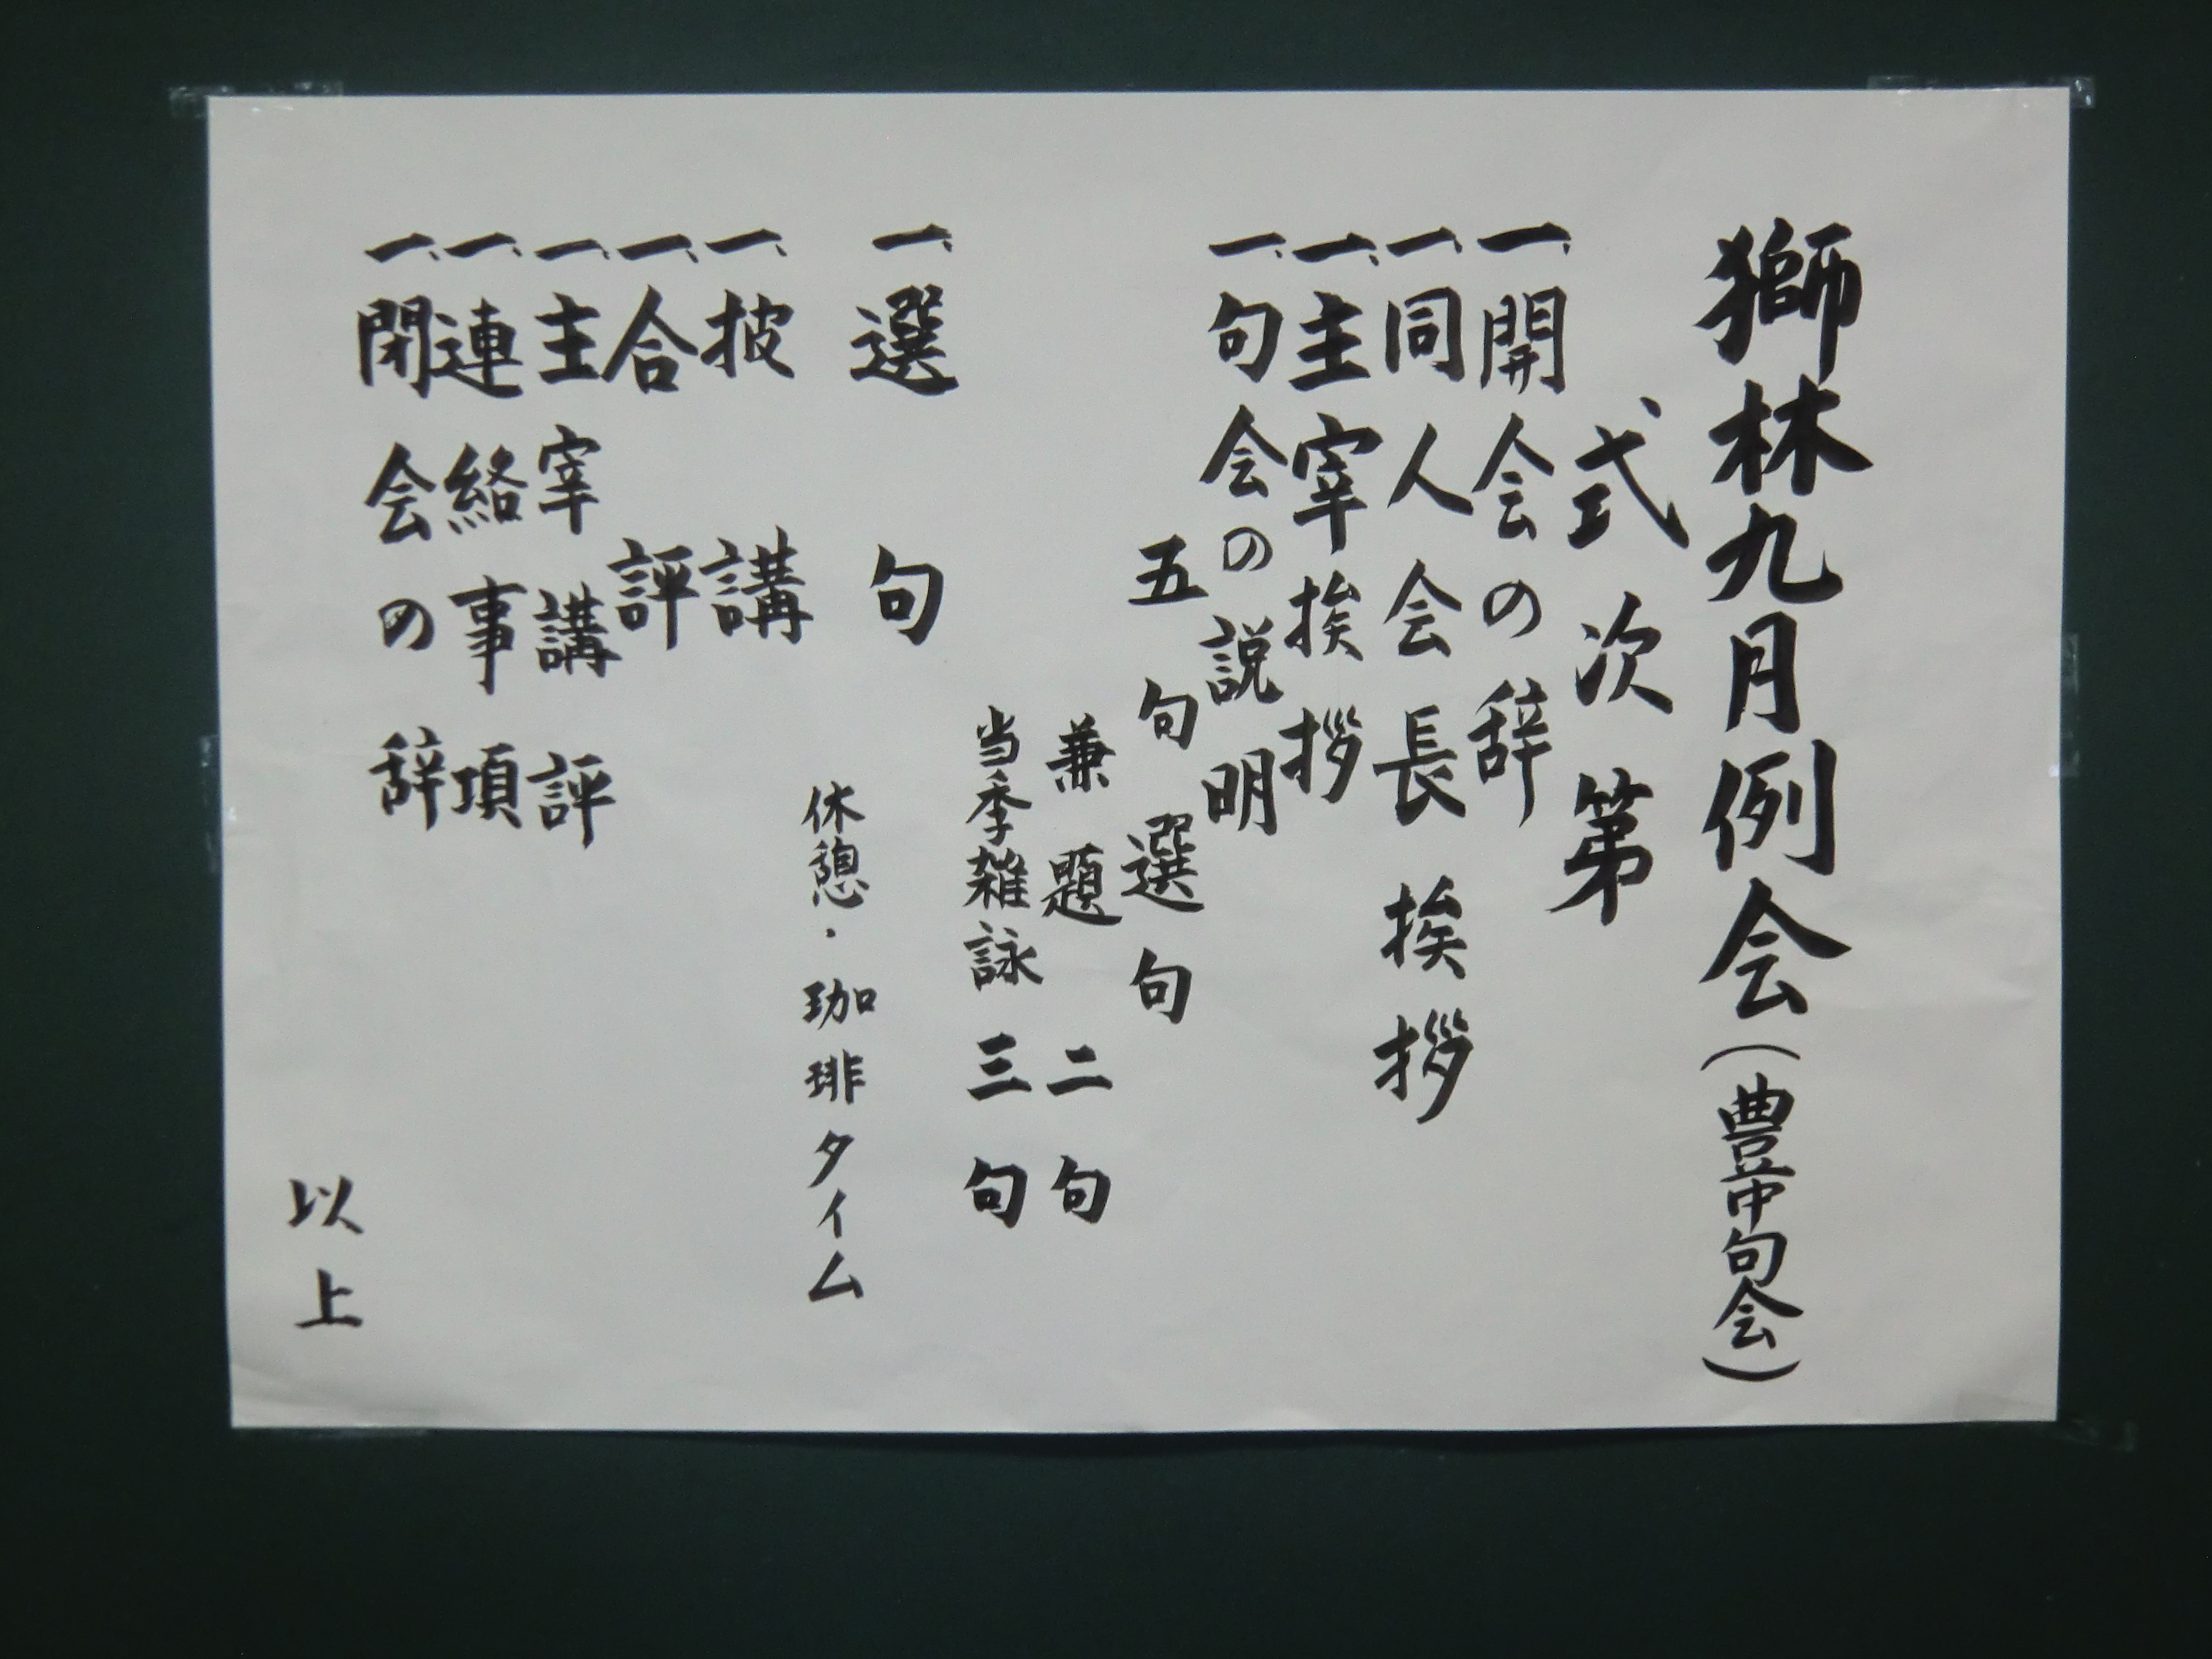 獅林九月例会（豊中句会）
式次第
一、開会の辞
一、同人会長挨拶
一、主宰挨拶
一、句会の説明
五句選句
兼題 二句
当季雑詠 三句
一、選句
休憩・珈琲タイム
一、披講
一、合評
一、主宰講評
一、連絡事項
一、閉会の辞
以上